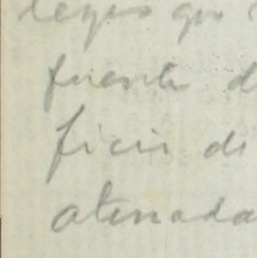 leyes que
fuente d
ficio de
atenada